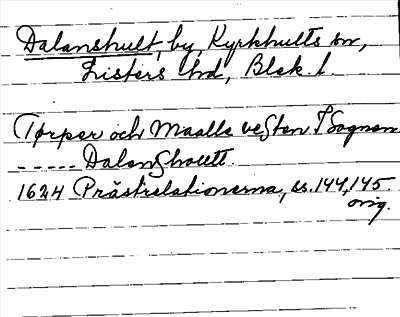 Dalanshult, by, Kyrkhults sn,
Listers hd, Blek. l.
Tørper och Maalle vesten I Sognen
----- Dalanshoult.
1624 Prästrelationerna, ss. 144, 145.
orig.